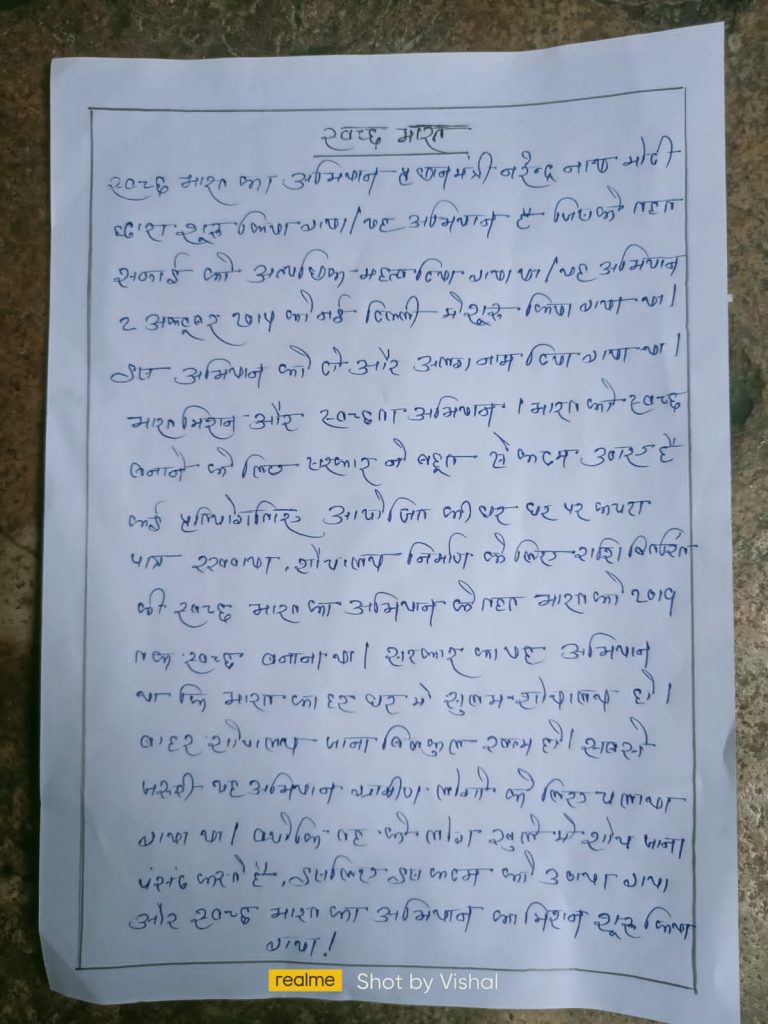 स्वच्छ भारत
स्वच्छ भारत का अभियान प्रधानमंत्री नरेन्द्र नाथ मोदी
द्वारा शुरू किया गया। यह अभियान है जिसके तहत
सफाई को अत्यधिक महत्व दिया गया था। यह अभियान
2 अक्टूबर 2014 को नई दिल्ली में शुरू किया गया था।
इस अभियान को दो और अलग नाम दिया गया था।
भारत मिशन और स्वच्छता अभियान। भारत को स्वच्छ
बनाने के लिए सरकार ने बहुत से कदम उठाए है
कई प्रतियोगिताए आयोजित की घर घर पर कचरा
पात्र रखवाया, शौचालय निर्माण के लिए राशि वितरित
की स्वच्छ भारत का अभियान के तहत भारत को 2019
तक स्वच्छ बनाना था। सरकार का यह अभियान
था कि भारत का हर घर में सुलभ शौचालय हो।
बाहर शौचालय जाना बिलकुल खत्म हो। सबसे
जरूरी यह अभियान ग्रामीण लोगों के लिए चलाया
गया था। क्योकि वह के लोग खुले में शौच जाना
पंसंद करते है, इसलिए इस कदम को उठाया गया
और स्वच्छ भारत का अभियान का मिशन शुरू किया
गया!
realme Shot by Vishal